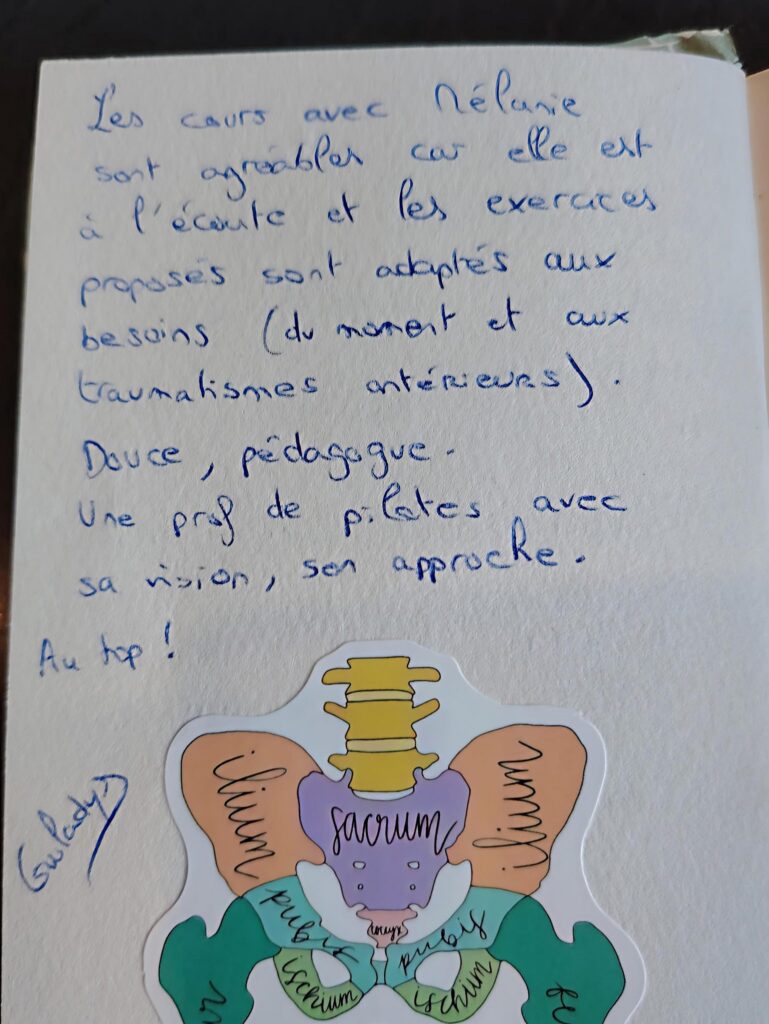 Les cours avec Mélanie
sont agréables car elle est
à l'écoute et les exercices
proposés sont adaptés aux
besoins (du moment et aux
traumatismes antérieurs).
Douce, pédagogue.
Une prof de pilates avec
sa vision, son approche.
Au top !
Gwladys
ilium
sacrum
ilium
pubis
coccyx
pubis
ischium
ischium